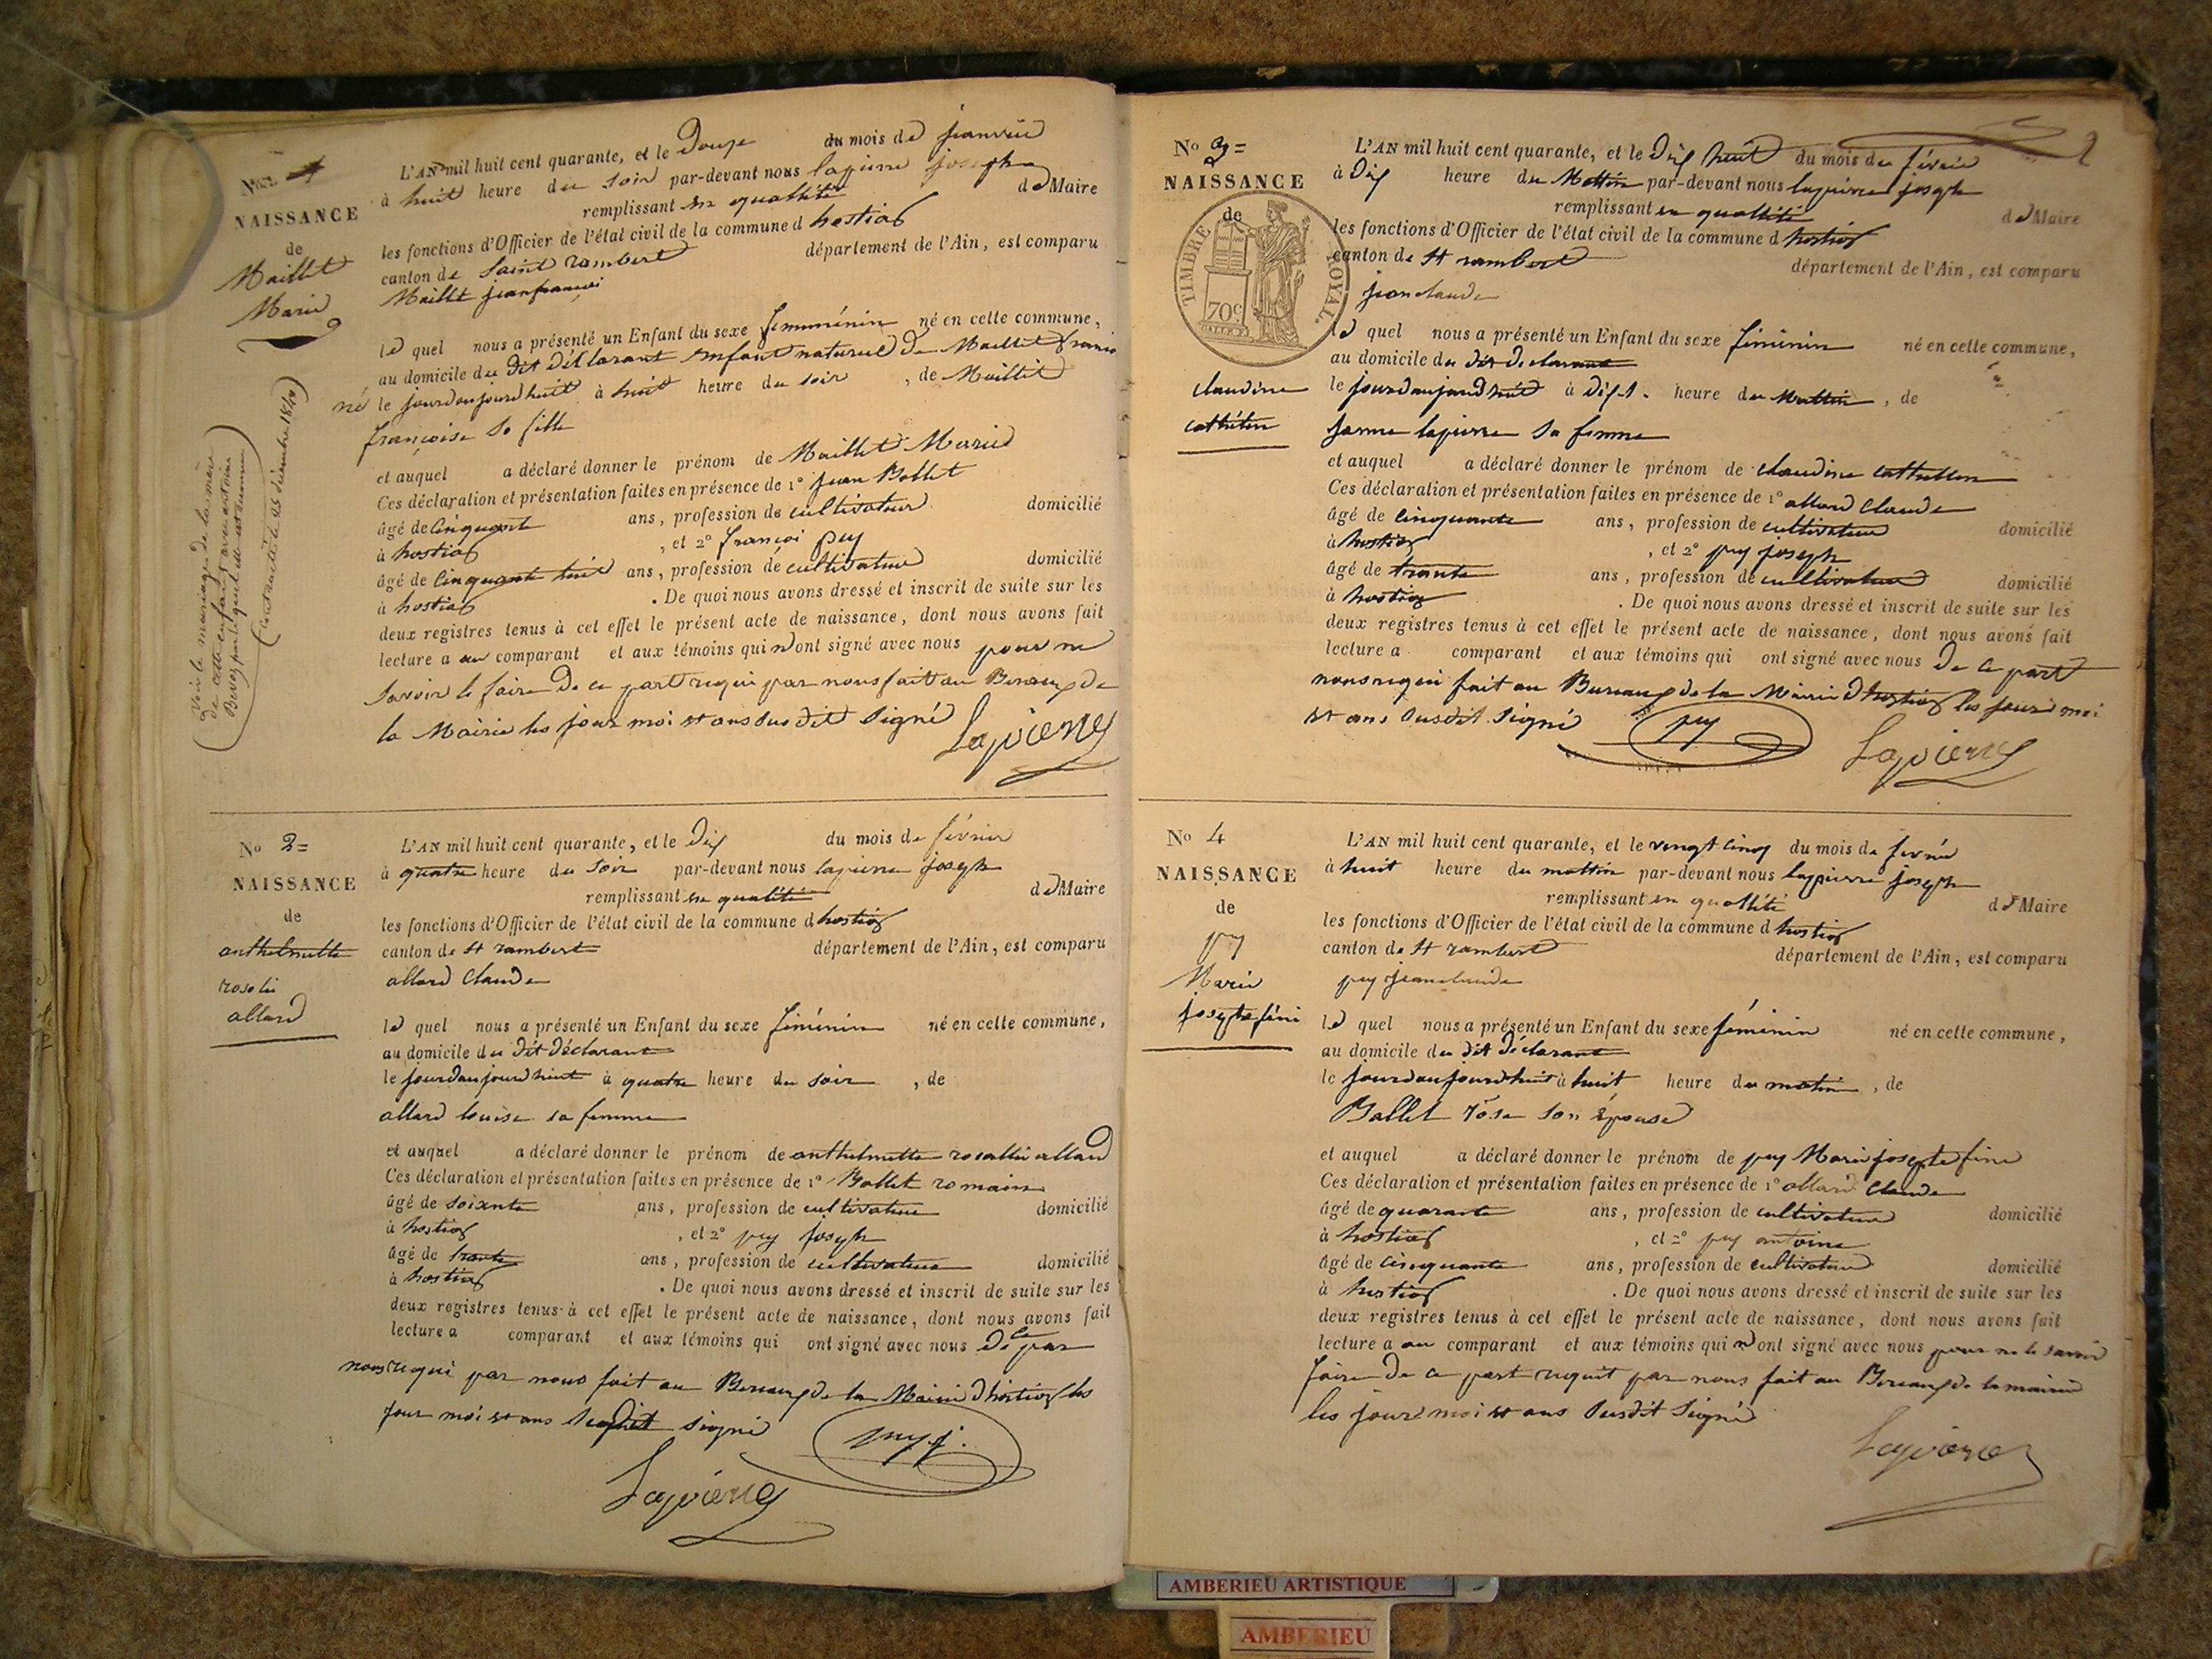 No 1
NAISSANCE
de
Maillet
Marie
L'AN mil huit cent quarante, et le Douze du mois de janvier
à huit heure du soir par-devant nous lapierre joseph
remplissant en quallité de Maire
les fonctions d'Officier de l'état civil de la commune d hostiaz
canton de Saint rambert département de l'Ain, est comparu
Maillet jeanfrançoi
le quel nous a présenté un Enfant du sexe femminin né en cette commune,
au domicile du dit déclarant enfant naturel de Maillet
né le jourdaujourdhuit à huit heure du soir, de Maillet
françoise sa fille
et auquel a déclaré donner le prénom de Maillet Marie
Ces déclaration et présentation faites en présence de 1° jean Ballet
âgé de Cinquante ans, profession de cultivateur domicilié
à hostiaz, et 2° françoi puy
âgé de Cinquante huit ans, profession de cultivateur domicilié
à hostiaz. De quoi nous avons dressé et inscrit de suite sur les
deux registres tenus à cet effet le présent acte de naissance, dont nous avons fait
lecture a au comparant et aux témoins qui n'ont signé avec nous pour ne
savoir le faire de ce part requi par nous fait au Bureaux de
la Mairie les jour moi et ans sus dit signé
Lapierre
voir le mariage de la mère
de cette enfant avec antoine
Bevoz par lequel elle est reconnue
(Contracté le 23 décembre 1840)
No 2=
NAISSANCE
de
anthelmette
rosalie
allard
L'AN mil huit cent quarante, et le Dix du mois de février
à quatre heure du soir par-devant nous lapierre joseph
remplissant en qualité de Maire
les fonctions d'Officier de l'état civil de la commune d hostiaz
canton de St rambert département de l'Ain, est comparu
allard Claude
le quel nous a présenté un Enfant du sexe féminin né en cette commune,
au domicile du dit déclarant
le jourdaujourdhuit à quatre heure du soir, de
allard louise sa femme
et auquel a déclaré donner le prénom de anthelmette rosallie allard
Ces déclaration et présentation faites en présence de 1° Ballet romain
âgé de soixante ans, profession de cultivateur domicilié
à hostiaz, et 2° puy joseph
âgé de trante ans, profession de cultivateur domicilié
à hostiaz. De quoi nous avons dressé et inscrit de suite sur les
deux registres tenus à cet effet le présent acte de naissance, dont nous avons fait
lecture a comparant et aux témoins qui ont signé avec nous de ce par
nous requi par nous fait au Bureaux de la Mairie dhostiaz les
jour moi et ans susdit signé
puy j.
Lapierre
No 3=
NAISSANCE
de
TIMBRE ROYAL
70c
claudine
cathéten
L'AN mil huit cent quarante, et le Dix huit du mois de févrie
à Dix heure du Mattin par-devant nous lapierre joseph
remplissant en quallité de Maire
les fonctions d'Officier de l'état civil de la commune d hostiaz
canton de St rambert département de l'Ain, est comparu
jean claude
le quel nous a présenté un Enfant du sexe féminin né en cette commune,
au domicile du dit déclarant
le jourdaujourdhuit à dix heure du Mattin, de
lapierre sa femme
et auquel a déclaré donner le prénom de claudine
Ces déclaration et présentation faites en présence de 1° allard Claude
âgé de Cinquante ans, profession de cultivateur domicilié
à hostiaz, et 2° puy joseph
âgé de trante ans, profession de cultivateur domicilié
à hostiaz. De quoi nous avons dressé et inscrit de suite sur les
deux registres tenus à cet effet le présent acte de naissance, dont nous avons fait
lecture a comparant et aux témoins qui ont signé avec nous de ce part
nous requi fait au Bureaux de la Mairie dhostiaz les jour moi
et ans susdit signé
puy
Lapierre
No 4
NAISSANCE
de
puy
Marie
josephtefine
L'AN mil huit cent quarante, et le vingt cinq du mois de fevrié
à huit heure du mattin par-devant nous lappierre joseph
remplissant en quallité de Maire
les fonctions d'Officier de l'état civil de la commune d hostiaz
canton de St rambert département de l'Ain, est comparu
puy jeanclaude
le quel nous a présenté un Enfant du sexe féminin né en cette commune,
au domicile du dit déclarant
le jourdaujourdhuit à huit heure du matin, de
Ballet rose son épouse
et auquel a déclaré donner le prénom de puy Marie josephtefine
Ces déclaration et présentation faites en présence de 1° allard Claude
âgé de quarante ans, profession de cultivateur domicilié
à hostiaz, et 2° puy antoine
âgé de Cinquante ans, profession de cultivateur domicilié
à hostiaz. De quoi nous avons dressé et inscrit de suite sur les
deux registres tenus à cet effet le présent acte de naissance, dont nous avons fait
lecture a au comparant et aux témoins qui n'ont signé avec nous pour ne le savoir
faire de ce part requit par nous fait au Bureaux de la mairie
les jour moi et ans susdit signé
Lapierre
AMBERIEU ARTISTIQUE
AMBERIEU